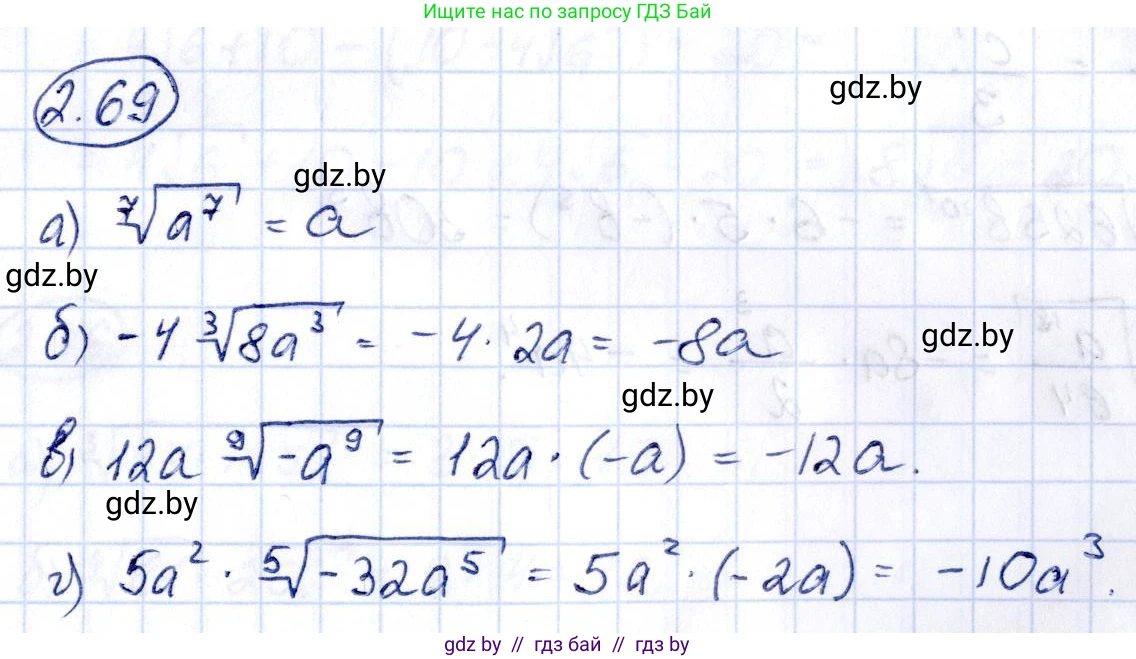 Ищите нас по запросу ГДЗ Бай
2.69
gdz.by
gdz.by
а) ⁷√a⁷ = a
gdz.by
б) -4 ³√8a³ = -4 · 2a = -8a
gdz.by
gdz.by
в) 12a ⁹√-a⁹ = 12a · (-a) = -12a.
gdz.by
г) 5a² · ⁵√-32a⁵ = 5a² · (-2a) = -10a³.
gdz by // гдз бай // гдз by